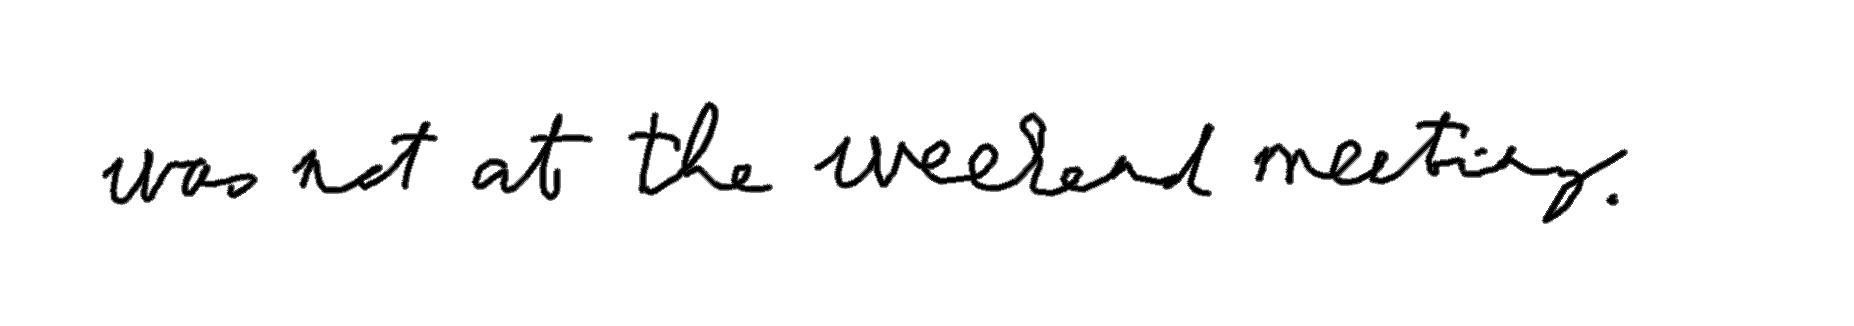 was not at the weekend meeting.